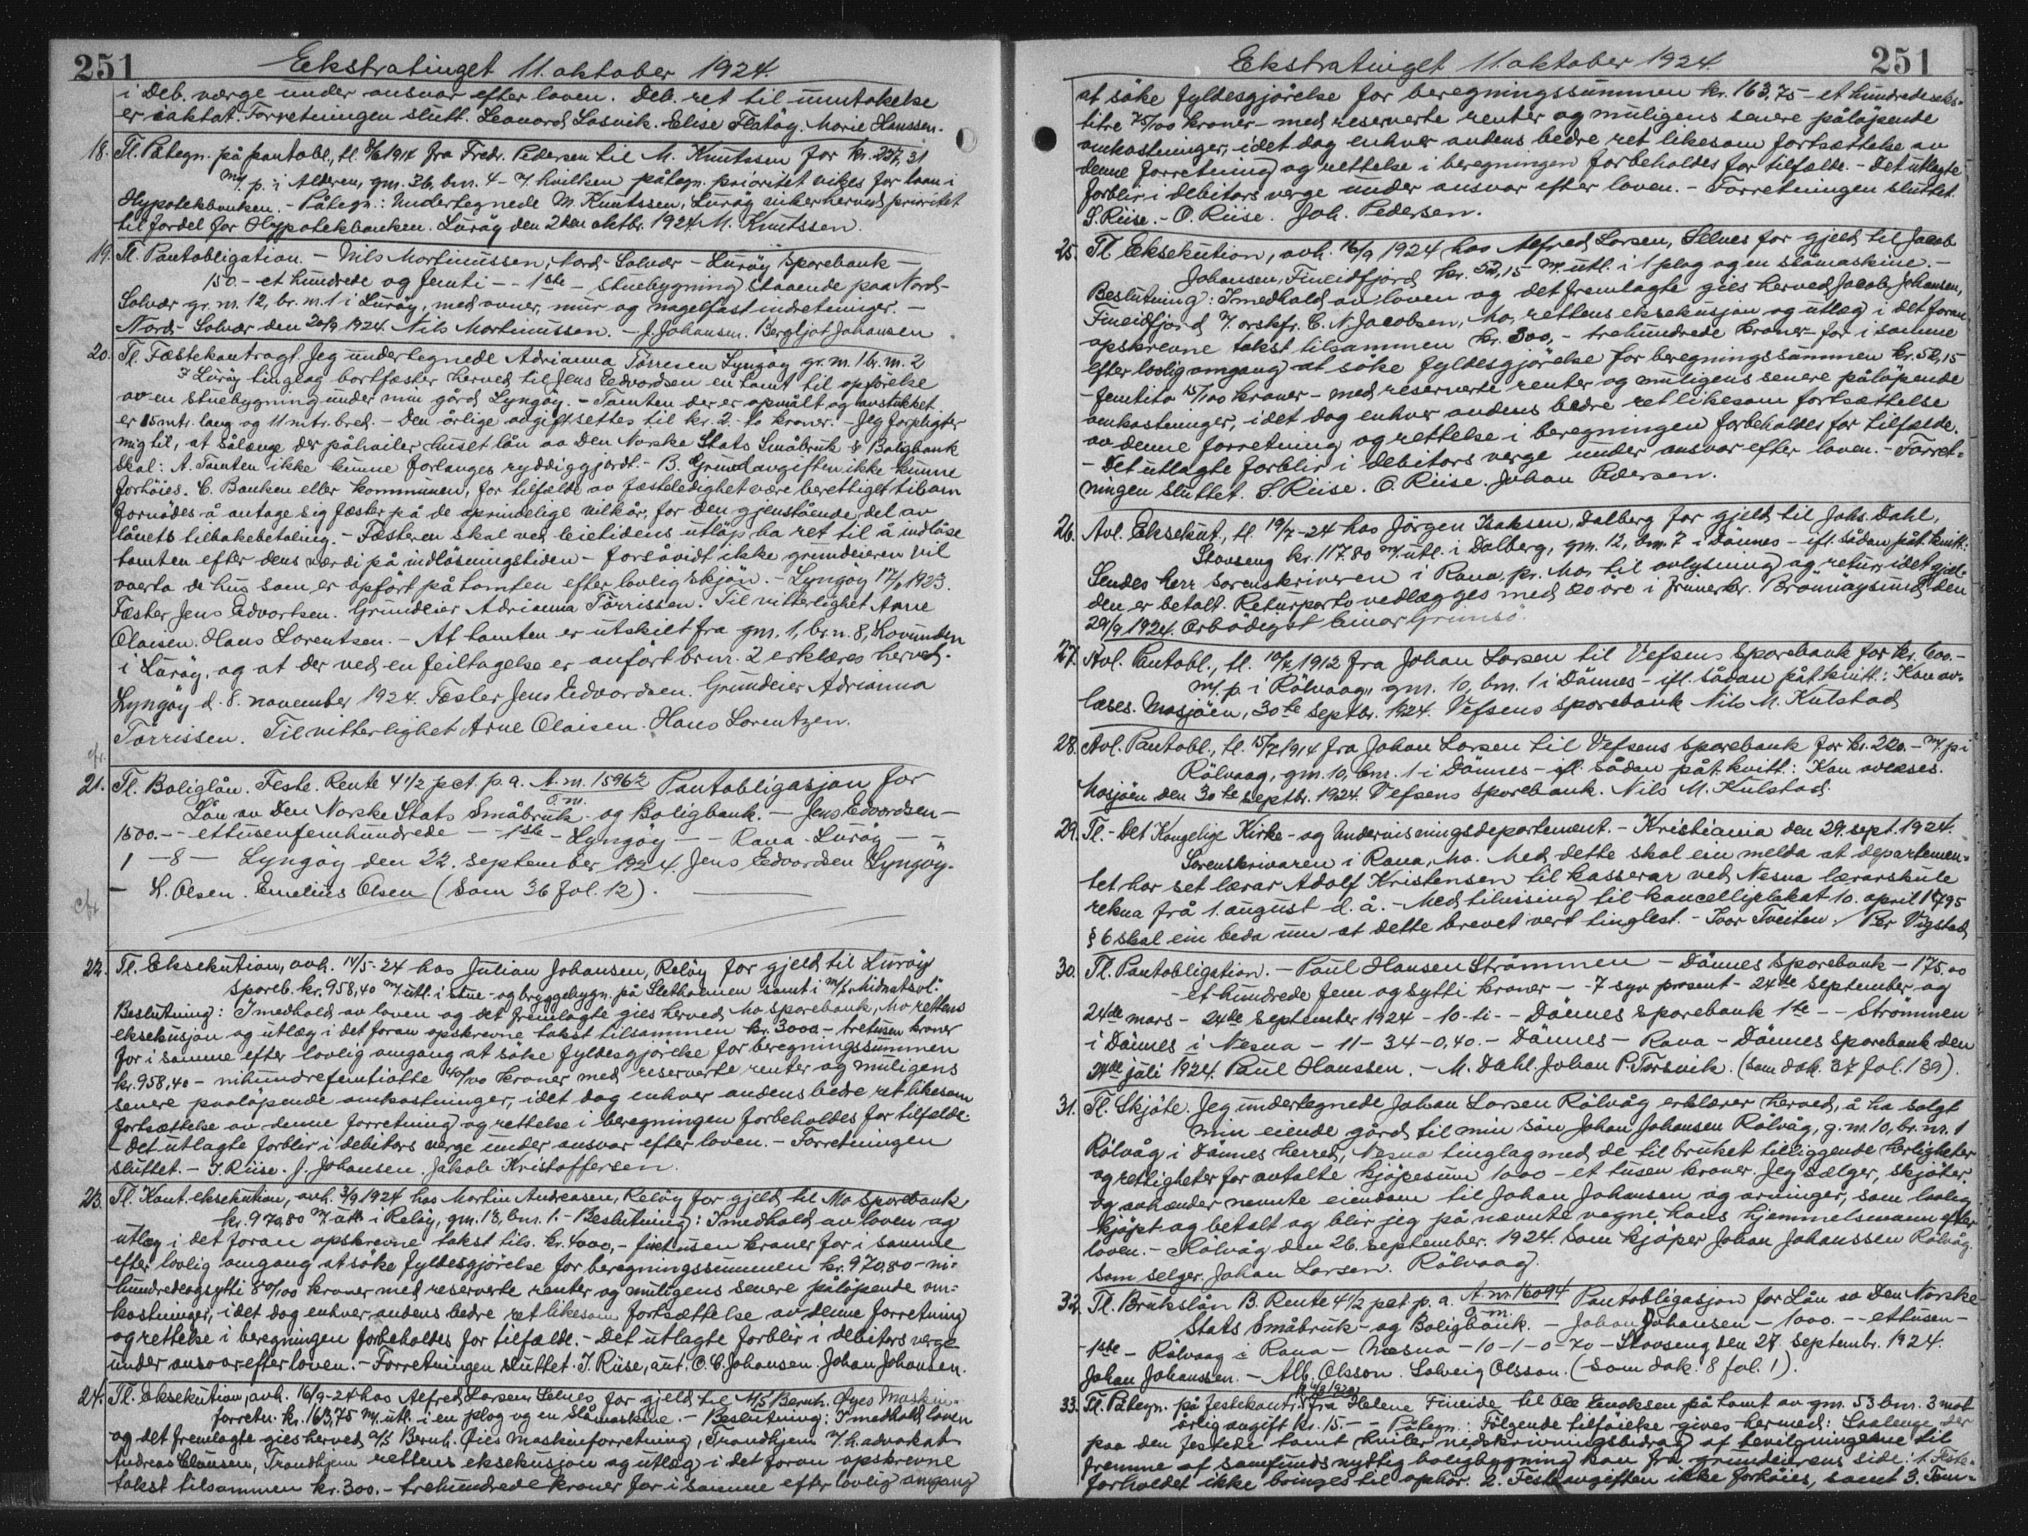 251
Ekstratinget 11. oktober 1924.
i Deb. værge under ansvar efter loven. Deb. ret til unntakelse
er iaktat. Forretningen slutt. Leonard Lasvik. Elise Flatøy. Marie Hanssen.
18. Tl. Påtegn. på pantobl., tl. 9/6 1917 fra Fredr. Pedersen til M. Knutssen for kr. 237,31
m/. p. i Alderen, gm. 36, bm. 4 - 7. hvilken påtegn. prioritet vikes for loan i
Hypotekbanken. - Påtegn.: Undertegnede M. Knutssen, Lurøy viker herved prioritet
til fordel for Hypotekbanken. Lurøy den 2den oktbr. 1924 M. Knutssen.
19. Tl. Pantobligation. - Nils Mortinussen, Nord-Solvær - Lurøy Sparebank -
150. - et hundrede og femti - - 1ste - stuebygning staaende paa Nord-
Solvær gr. m. 12, br. m. 1 i Lurøy, med ovner, mur og nagelfast indretninger. -
Nord-Solvær den 20/9 1924 Nils Mortinussen. - J. Johansen. Bergljot Johansen
20. Tl. Fæstekontragt. Jeg undertegnede Adrianna Tørresen Lyngøy gr. m. 1 br. m. 2
i Lurøy tinglag bortfæster herved til Jens Edvardsen en tomt til opførelse
av en stuebygning under min gård Lyngøy. - Tomten der er opmålt og avstukket
er 15 mtr. lang og 11 mtr. bred. - Den årlige avgift settes til kr. 2. to kroner. - Jeg forpligter
mig til, at sålænge der påhviler huset lån av Den Norske Stats Småbruk & Boligbank
skal: A. Tomten ikke kunne forlanges ryddiggjordt. - B. Grundavgiften ikke kunne
forhøies. C. Banken eller kommunen, for tilfælde av fæsteledighet være berettiget til om
fornødes å antage sig fæster på de oprindelige vilkår, for den gjenstående del av
lånets tilbakebetaling. - Fæsteren skal ved leietidens utløp ha ret til å indløse
tomten efter dens værdi på indløsningstiden - forsåvidt ikke grundeieren vil
overta de hus som er opført på tomten efter lovlig skjøn. - Lyngøy 17/1 1923.
Fæster Jens Edvartsen. Grundeier Adrianna Tørrissen. Til vitterlighet Arne
Olaisen. Hans Lorentsen. - At tomten er utskilt fra gm. 1, br. n. 8, Lovunden
i Lurøy, og at der ved en feiltagelse er anført br.nr. 2 erklæres herved.
Lyngøy d. 8. november 1924. Fæster Jens Edvardsen. Grundeier Adrianna
Tørrissen. Til vitterlighet Arne Olaisen. Hans Lorentzen.
21. Tl. Boliglån. Feste. Rente 4 1/2 pct. p. a. A. m. 15962 Pantobligasjon for
O. m.
Lån av Den Norske Stats Småbruk- og Boligbank. - Jens Edvardsen -
1500. - - ettusenfemhundrede - - 1ste - Lyngøy - - Rana - Lurøy - -
1 - 8 - Lyngøy den 22. september 1924. Jens Edvardsen Lyngøy.
- L. Olsen. Emelius Olsen (Som 36 fol. 12).
22. Tl. Eksekution, avh. 14/5-24 hos Julian Johansen, Reløy for gjeld til Lurøy
spareb. kr. 958,40 m/. utl. i stue- og bryggebygn. på Sletholmen samt i
Beslutning: I medhold av loven og det fremlagte gies herved Mo sparebank, Mo rettens
eksekusjon og utlæg i det foran opskrevne takst tilsammen kr. 3000 - tretusen kroner
for i samme efter lovlig omgang at søke fyldesgjørelse for beregningssummen
kr. 958,40 - nihundrefemtiotte 40/100 kroner med reserverte renter og muligens
senere paaløpende omkostninger, idet dog enhver andens bedre ret likesom
fortsættelse av denne forretning og rettelse i beregningen forbeholdes for tilfælde.
- Det utlagte forblir i debitors verge under ansvar efter loven. - Forretningen
sluttet. - I. Riise. J. Johansen. Jakob Kristoffersen.
23. Tl. Kont. eksekution, avh. 3/9 1924 hos Martin Andreasen, Reløy for gjeld til Mo Sparebank
kr. 970,80 m/ utl. i Reløy, gm. 13, bm. 1. - Beslutning: I medhold av loven og
utlæg i det foran opskrevne takst tils. kr. 4000, - firetusen kroner for i samme
efter lovlig omgang at søke fyldesgjørelse for beregningssummen kr. 970,80 - ni-
hundredeogsytti 80/100 kroner med reserverte renter og muligens senere påløpende om-
kostninger, idet dog enhver andens bedre ret likesom fortsættelse av denne forretning
og rettelse i beregningen forbeholdes for tilfælde. - Det utlagte forblir i debitors verge
under ansvar efter loven. - Forretningen sluttet. I. Riise, aut. O. C. Johansen. Johan Johansen.
24. Tl. Eksekution, avh. 16/9-24 hos Alfred Larsen Selnes for gjeld til A/S Bernh. Øyes Maskin-
forretn. kr. 163,75 m/. utl. i en plog og en slåmaskine. - Beslutning: I medhold loven
og det fremlagte gies herved A/S Bernh. Øies Maskinforretning, Trondhjem v/ h. advokat
Andreas Claussen, Trondhjem rettens eksekusjon og utlæg i det foran opskrevne
takst tilsammen kr. 300. - trehundrede kroner for i samme efter lovlig omgang
Ekstratinget 11. oktober 1924
251
at søke fyldesgjørelse for beregningssummen kr. 163,75 - et hundredeseks-
titre 75/100 kroner - med reserverte renter og muligens senere påløpende
omkostninger, idet dog enhver andens bedre ret likesom fortsættelse av
denne forretning og rettelse i beregningen forbeholdes for tilfælde. - Det utlagte
forblir i debitors verge under ansvar efter loven. - Forretningen sluttet.
S. Riise. - O. Riise. Joh. Pedersen.
25. Tl. Eksekution, avh. 16/9 1924 hos Alfred Larsen, Selnes for gjeld til Jacob
Johansen, Fineidfjord kr. 52,15 m/. utl. i 1 plog og en slåmaskine. -
Beslutning: I medhold av loven og det fremlagte gies herved Jacob Johansen,
Fineidfjord v/ orskfr. C. N. Jacobsen, Mo, rettens eksekusjon og utlæg i det foran
opskrevne takst tilsammen kr. 300, - trehundrede kroner - for i samme
efter lovlig omgang at søke fyldesgjørelse for beregningssummen kr. 52,15
- femtito 15/100 kroner - med reserverte renter og muligens senere påløpende
omkostninger, idet dog enhver andens bedre ret likesom fortsættelse
av denne forretning og rettelse i beregningen forbeholdes for tilfælde.
- Det utlagte forblir i debitors verge under ansvar efter loven. - Forret-
ningen sluttet. S. Riise. O. Riise. Johan Pedersen.
26. Avl. Eksekut., tl. 19/7-24 hos Jørgen Isaksen, Dalberg for gjeld til Johs. Dahl,
Stovseng kr. 117.80 m/ utl. i Dalberg, gm. 12, bm. 7 i Dønnes - ifl. sådan påt. kvitt:
Sendes herr sorenskriveren i Rana, pr. Mo, til avlysning og retur, idet gjel-
den er betalt. Returporto vedlægges med 20 øre i frimerker. Brønnøysund den
29/9 1924. Ærbødigst Einar Grimsø.
27. Avl. Pantobl., tl. 10/7 1912 fra Johan Larsen til Vefsens Sparebank for kr. 600.-
m/. p. i Rølvaag, gm. 10, bm. 1 i Dønnes - ifl. sådan påt. kvitt.: Kan av-
læses. Mosjøen, 30te septbr. 1924. Vefsens Sparebank Nils M. Kulstad
28. Avl. Pantobl., tl. 15/7 1914 fra Johan Larsen til Vefsens sparebank for kr. 220. - m/. p i
Rølvaag, gm. 10, bm. 1 i Dønnes - ifl. sådan påt. kvitt.: Kan avlæses.
Mosjøen den 30te septbr. 1924. Vefsens Sparebank. Nils M. Kulstad.
29. Tl. - Det Kongelige Kirke- og Undervisningsdepartement. - Kristiania den 29. sept. 1924.
Sorenskrivaren i Rana, Mo. Med dette skal ein melda at departemen-
tet har set lærar Adolf Kristensen til kasserar ved Nesna lærarskule
rekna frå 1. august d. å. - Med tilvising til kancelliplakat 10. april 1795
§ 6 skal ein beda um at dette brevet vert tinglest. - Ivar Tveiten. Per Vigstad
30. Tl. Pantobligation. - Paul Hansen Strømmen - Dønnes Sparebank - 175.00
- et hundrede fem og sytti kroner - - 7 syv prosent - 24de september og
24de mars - 24de september 1924 - 10 - ti - - Dønnes Sparebank 1ste - - Strømmen
i Dønnes i Nesna - 11 - 34 - 0,40. - Dønnes - Rana - Dønnes Sparebank den
juli 1924. Paul Hanssen. - M. Dahl. Johan P. Forsvik. (Som dok. 37 fol. 139).
31. Tl. Skjøte. Jeg undertegnede Johan Larsen Rølvåg erklærer herved, å ha solgt
min eiende gård til min søn Johan Johansen Rølvåg, g. m. 10, br. nr. 1
Rølvåg i Dønnes herred, Nesna tinglag med de til bruket tilliggende herligheter
og rettigheter for avtalte kjøpesum 1000 - et tusen kroner. Jeg sælger, skjøter,
og avhænder nevnte eiendom til Johan Johansen og arvinger, som lovlig
kjøpt og betalt og blir jeg på nævnte vegne hans hjemmelsmann efter
loven. - Rølvåg den 26. september. 1924. Som kjøper Johan Johanssen Rølvåg.
Som selger. Johan Larsen. Rølvaag.
32. Tl. Brukslån B. Rente 4 1/2 pct. p. a. A. m. 16094 Pantobligasjon for Lån av Den Norske
O. m.
Stats Småbruk- og Boligbank. - Johan Johansen - 1000. - - ettusen -
- 1ste - Rølvaag i Rana - Næsna - 10 - 1 - 0 - 70 - Stovseng den 27. septembr. 1924.
Johan Johansen. - Alb. Olsson. Solveig Olsson. (Som dok. 8 fol. 1)
33. Tl. Påtegn. på festekontr. fra Helene Fineide til Ole Enoksen på tomt av gm. 53 bm. 3 mot
årlig avgift kr. 15. - - Påtegn.: Følgende tilføielse gives hermed: Saalenge der
paa den festede tomt hviler nedskrivningsbidrag af bevilgningerne til
fremme af samfundsnyttig boligbygning kan fra grundeierens side: 1. Feste-
forholdet ikke bringes til ophør. 2. Festeavgiften ikke forhøies, samt 3. Tom-